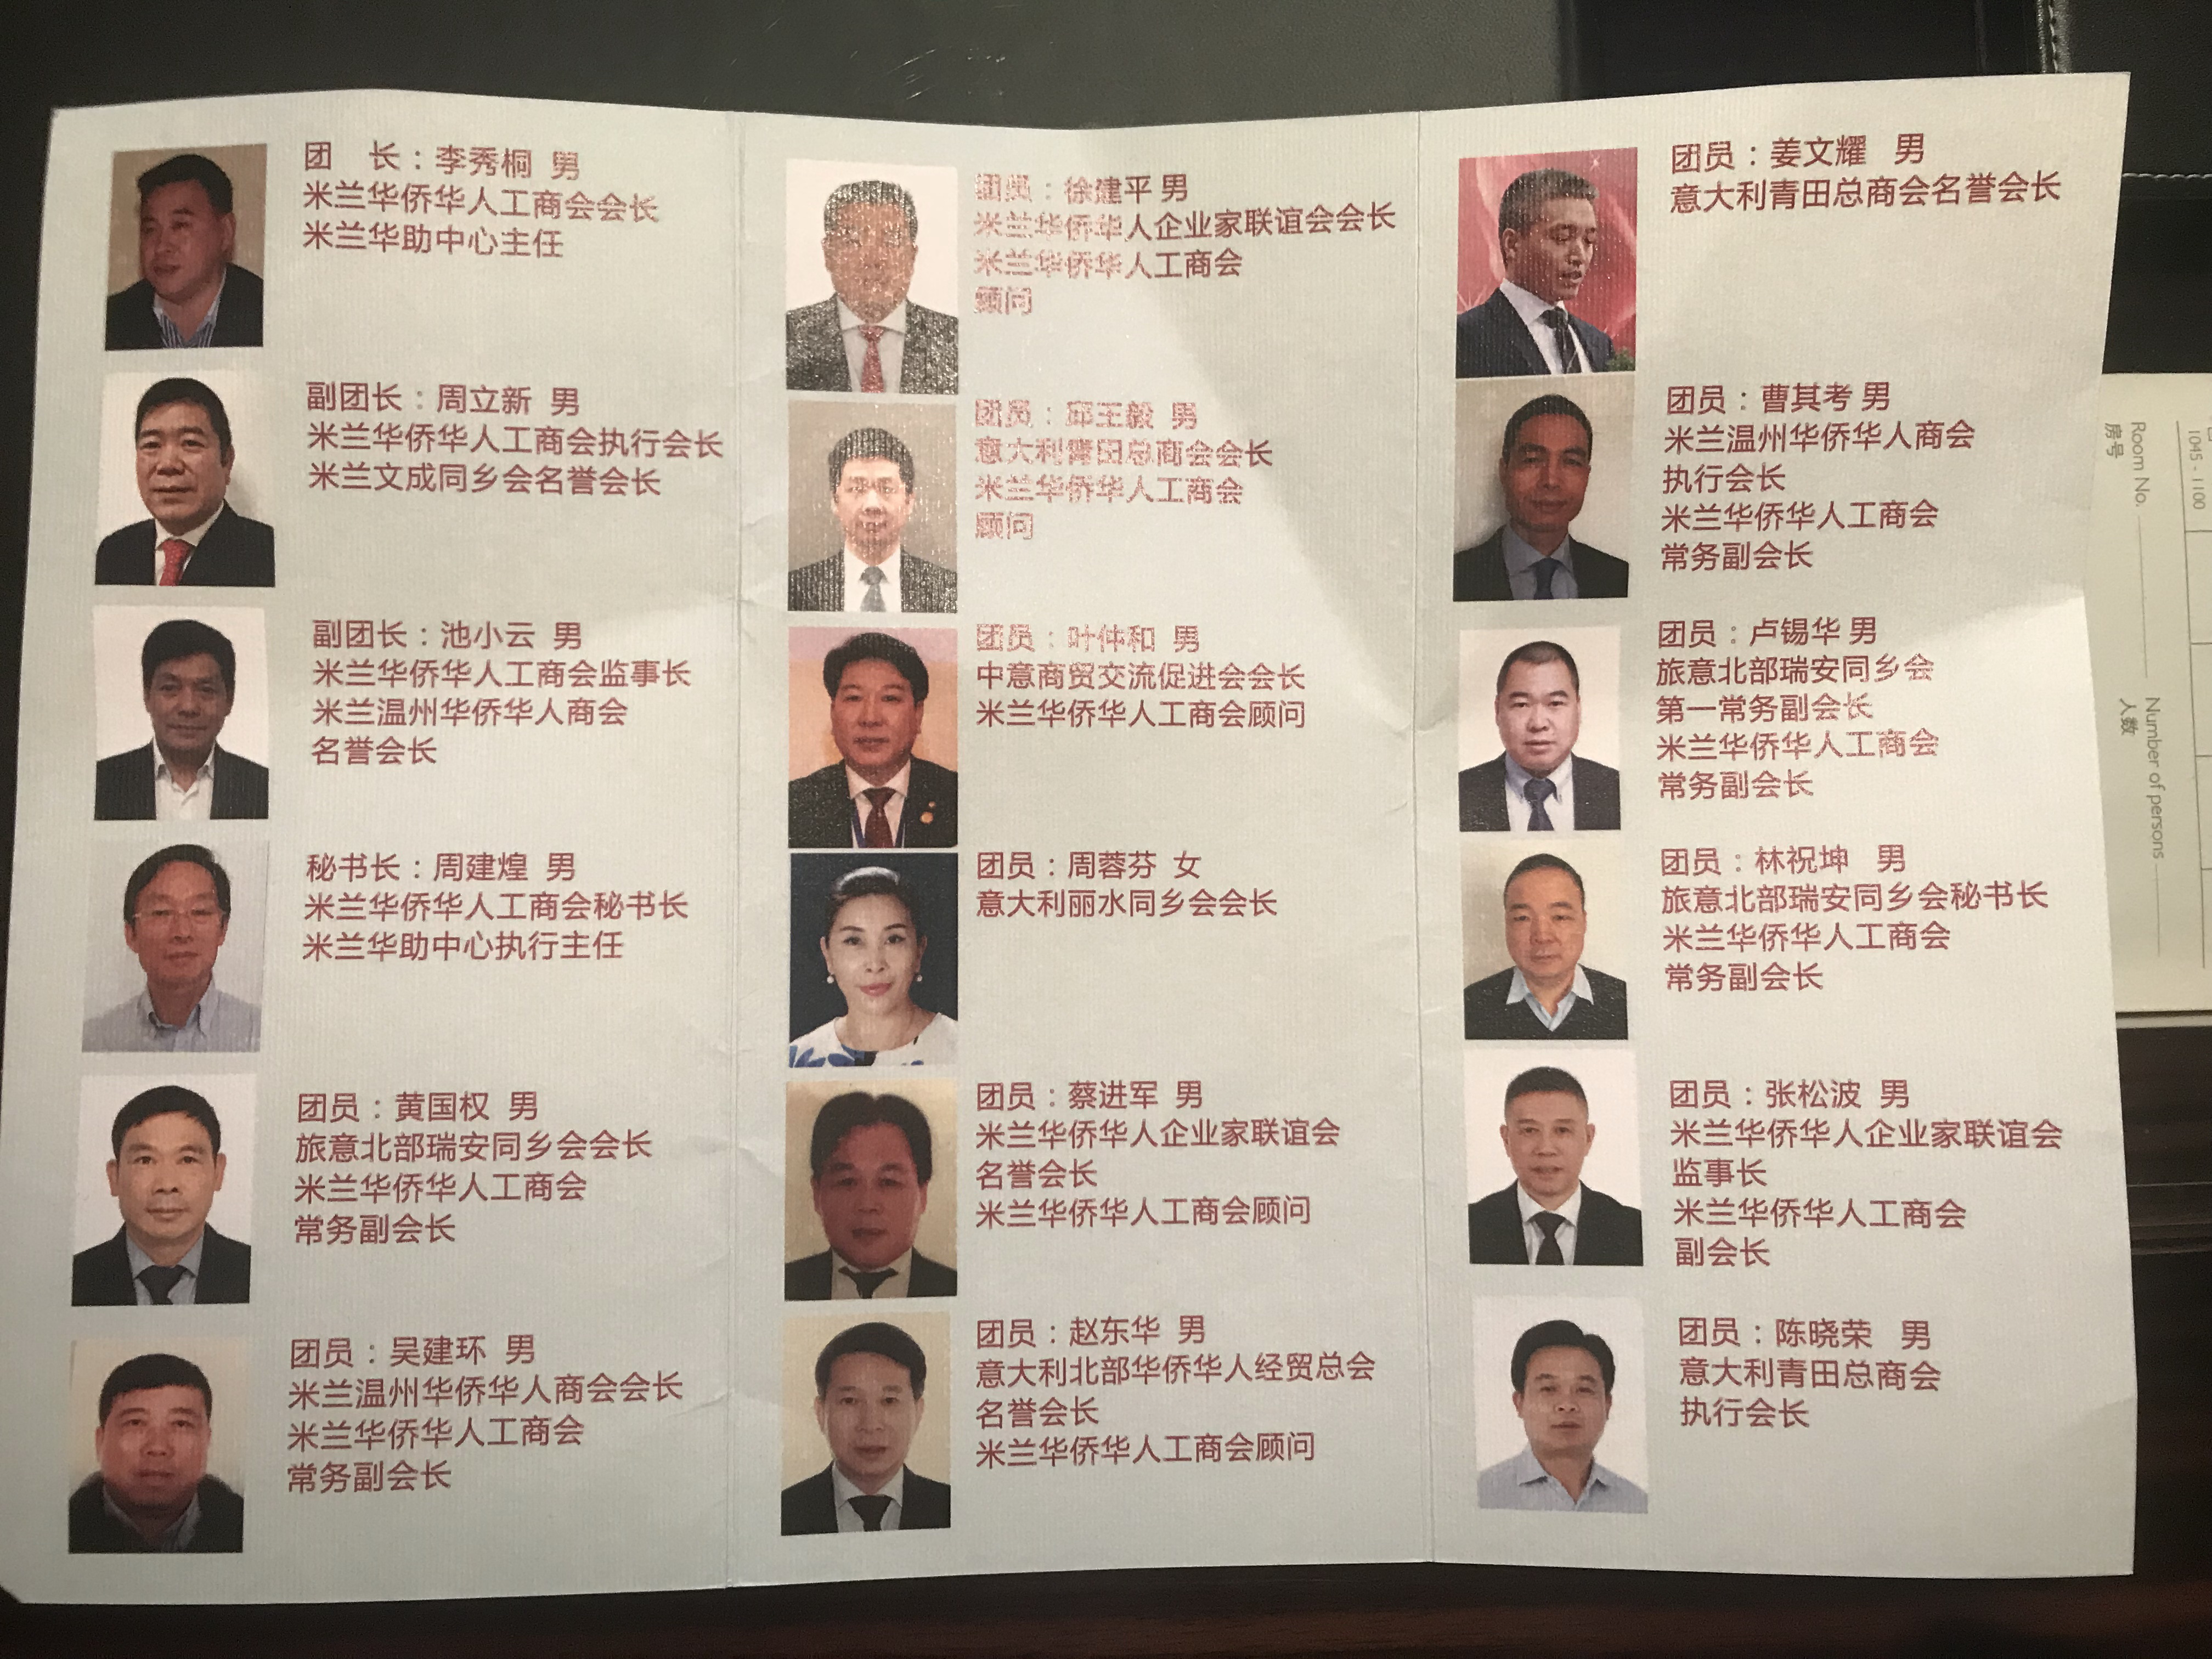 团　长：李秀桐 男
米兰华侨华人工商会会长
米兰华助中心主任
副团长：周立新 男
米兰华侨华人工商会执行会长
米兰文成同乡会名誉会长
副团长：池小云 男
米兰华侨华人工商会监事长
米兰温州华侨华人商会
名誉会长
秘书长：周建煌 男
米兰华侨华人工商会秘书长
米兰华助中心执行主任
团员：黄国权 男
旅意北部瑞安同乡会会长
米兰华侨华人工商会
常务副会长
团员：吴建环 男
米兰温州华侨华人商会会长
米兰华侨华人工商会
常务副会长
团员：徐建平 男
米兰华侨华人企业家联谊会会长
米兰华侨华人工商会
顾问
团员：邱王毅 男
意大利青田总商会会长
米兰华侨华人工商会
顾问
团员：叶仲和 男
中意商贸交流促进会会长
米兰华侨华人工商会顾问
团员：周蓉芬 女
意大利丽水同乡会会长
团员：蔡进军 男
米兰华侨华人企业家联谊会
名誉会长
米兰华侨华人工商会顾问
团员：赵东华 男
意大利北部华侨华人经贸总会
名誉会长
米兰华侨华人工商会顾问
团员：姜文耀 男
意大利青田总商会名誉会长
团员：曹其考 男
米兰温州华侨华人商会
执行会长
米兰华侨华人工商会
常务副会长
团员：卢锡华 男
旅意北部瑞安同乡会
第一常务副会长
米兰华侨华人工商会
常务副会长
团员：林祝坤 男
旅意北部瑞安同乡会秘书长
米兰华侨华人工商会
常务副会长
团员：张松波 男
米兰华侨华人企业家联谊会
监事长
米兰华侨华人工商会
副会长
团员：陈晓荣 男
意大利青田总商会
执行会长
1045 - 1100
Room No.
房号
Number of persons
人数